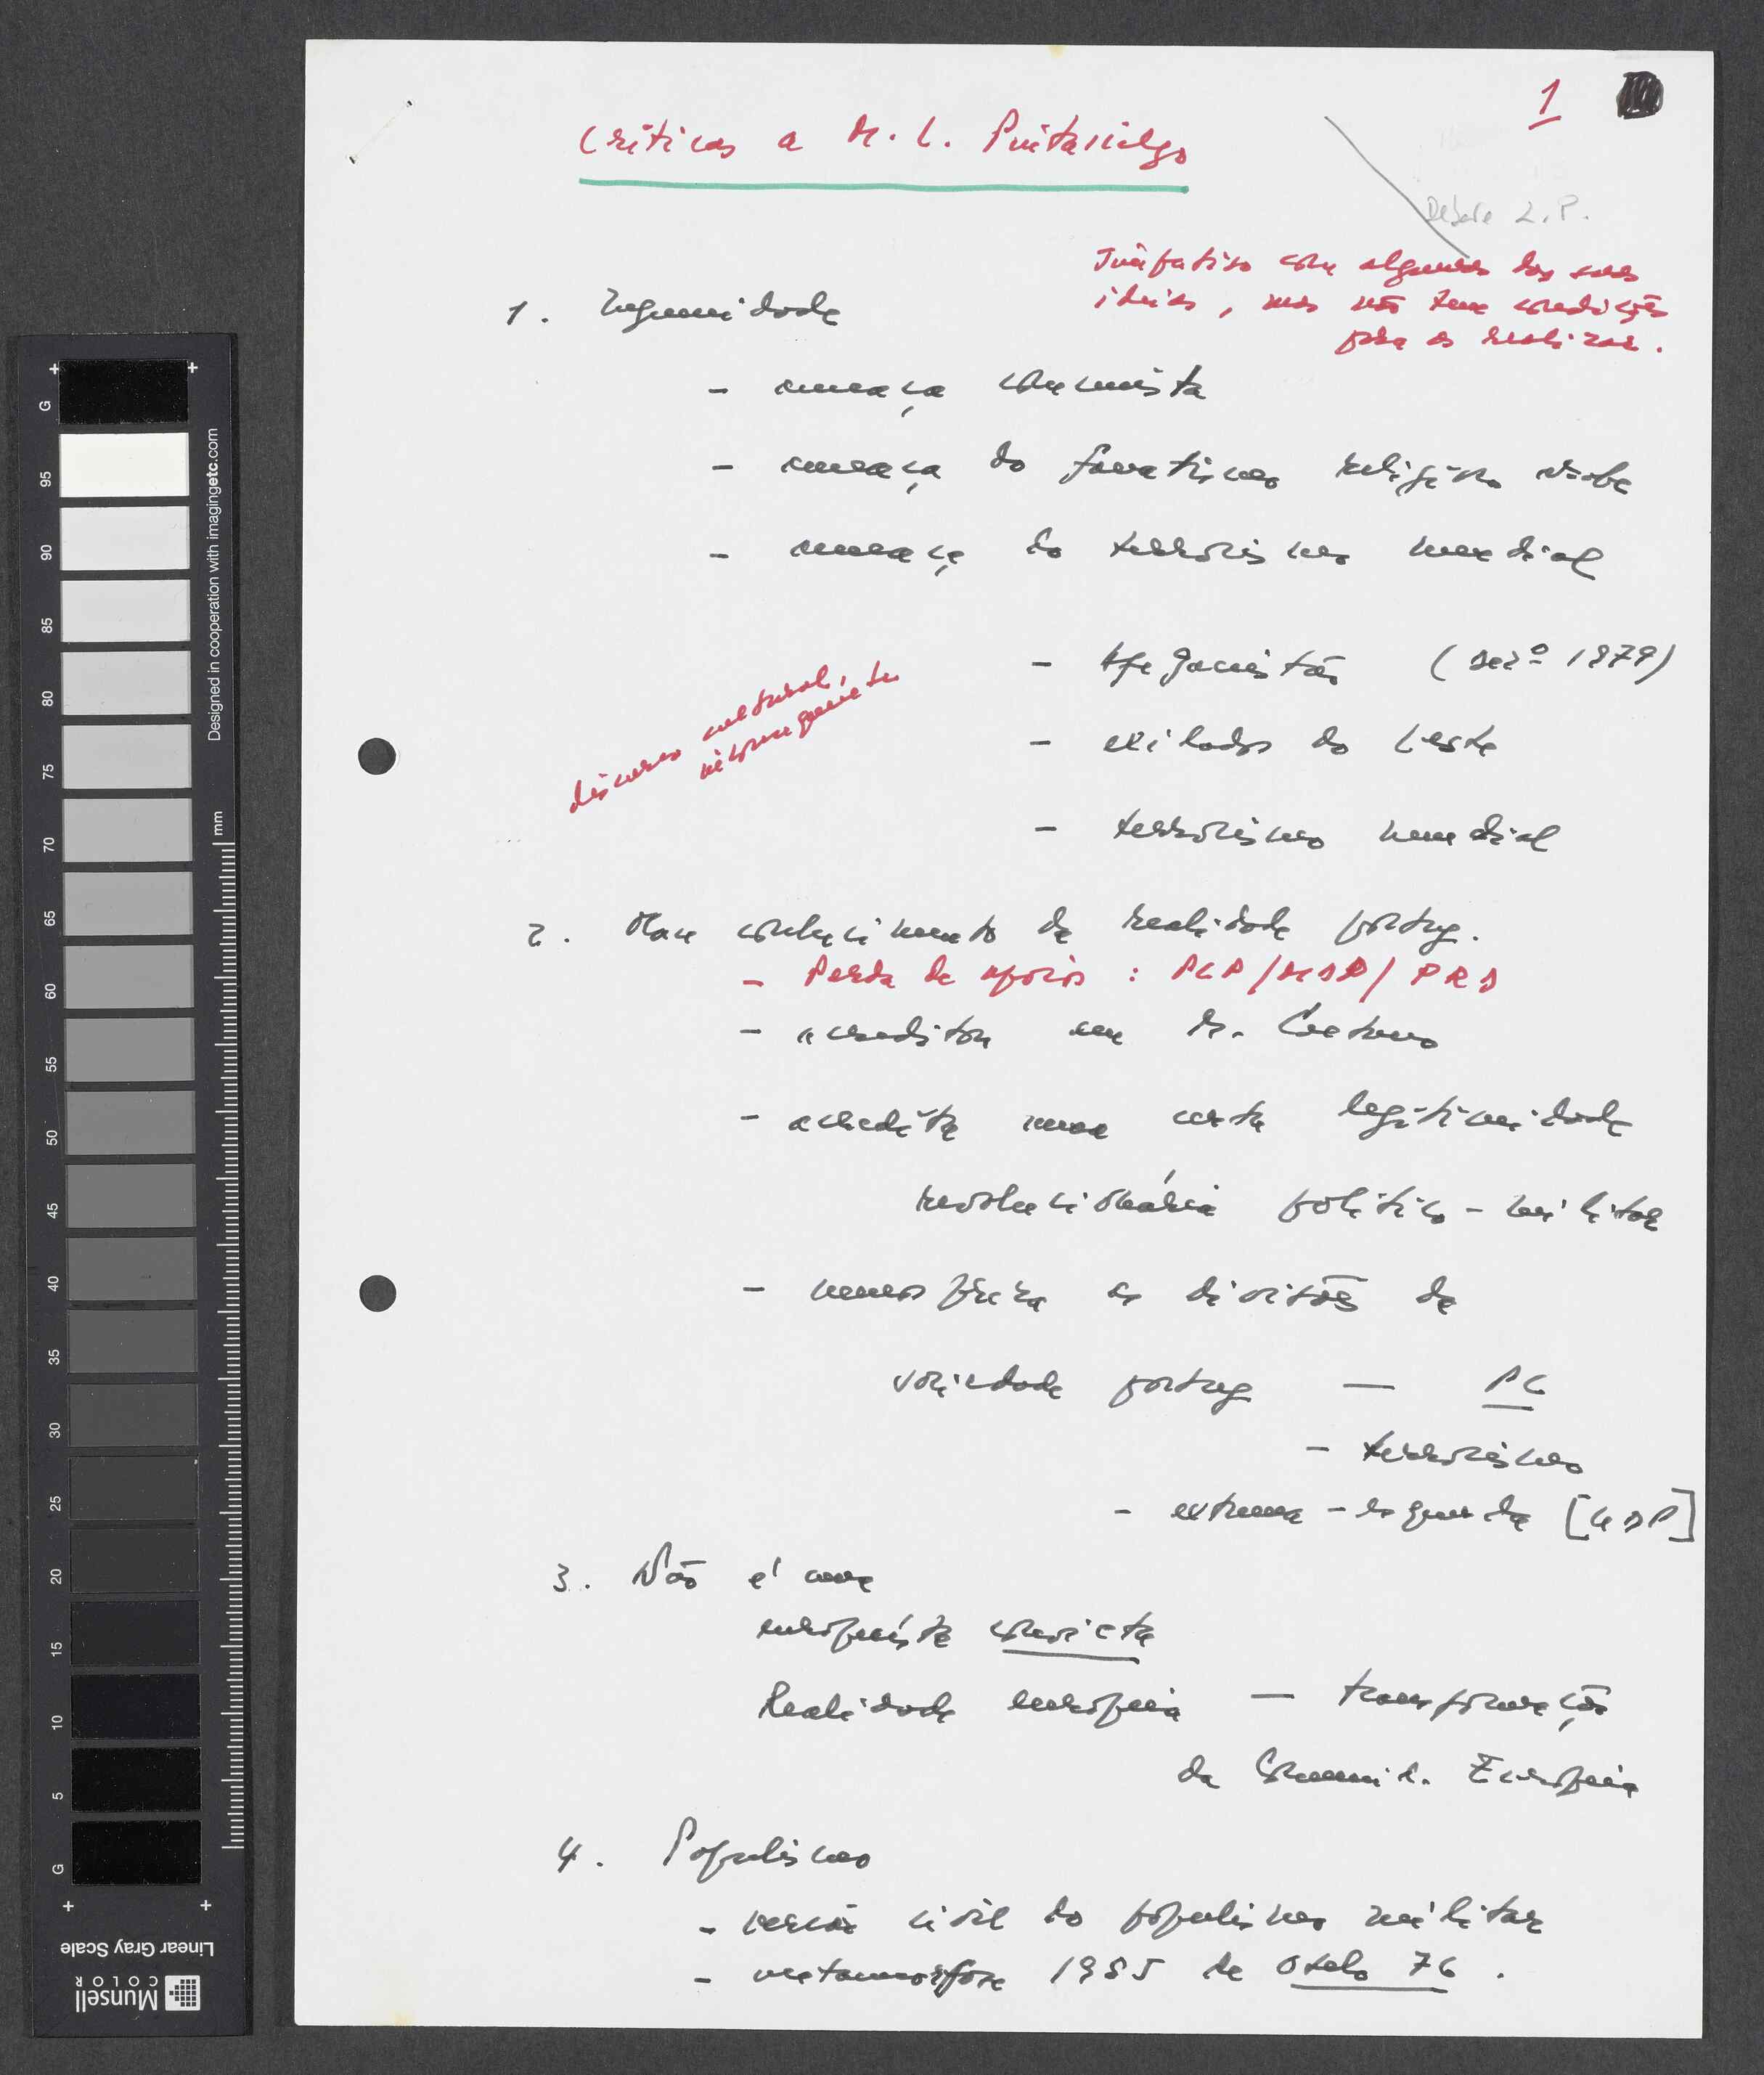 1
Críticas a M. L. Pintasilgo
Debate L. P.
Simpatizo com algumas das suas
ideias, mas não tem condições
para as realizar.
1. Ingenuidade
- ameaça comunista
- ameaça do fanatismo religioso árabe
- ameaça do terrorismo mundial
- Afeganistão (Dez.º 1979)
- exilados do Leste
discurso cultural,
- terrorismo mundial
2. Mau conhecimento da realidade portug.
- Perda de apoios : PCP/MDP/PRD
- acreditou em M. Caetano
- acredita numa certa legitimidade
revolucionária político-militar
- menospreza as divisões da
sociedade portug — PC
- terrorismo
- extrema-esquerda [UDP]
3. Não é uma
europeísta convicta
Realidade europeia — transformação
da Comunid. Europeia
4. Populismo
- versão civil do populismo militar
- metamorfose 1985 de Otelo 76.
G
95
90
85
80
75
70
65
60
55
50
45
40
35
30
25
20
15
10
5
G
mm
Designed in cooperation with imagingetc.com
Linear Gray Scale
Munsell
COLOR